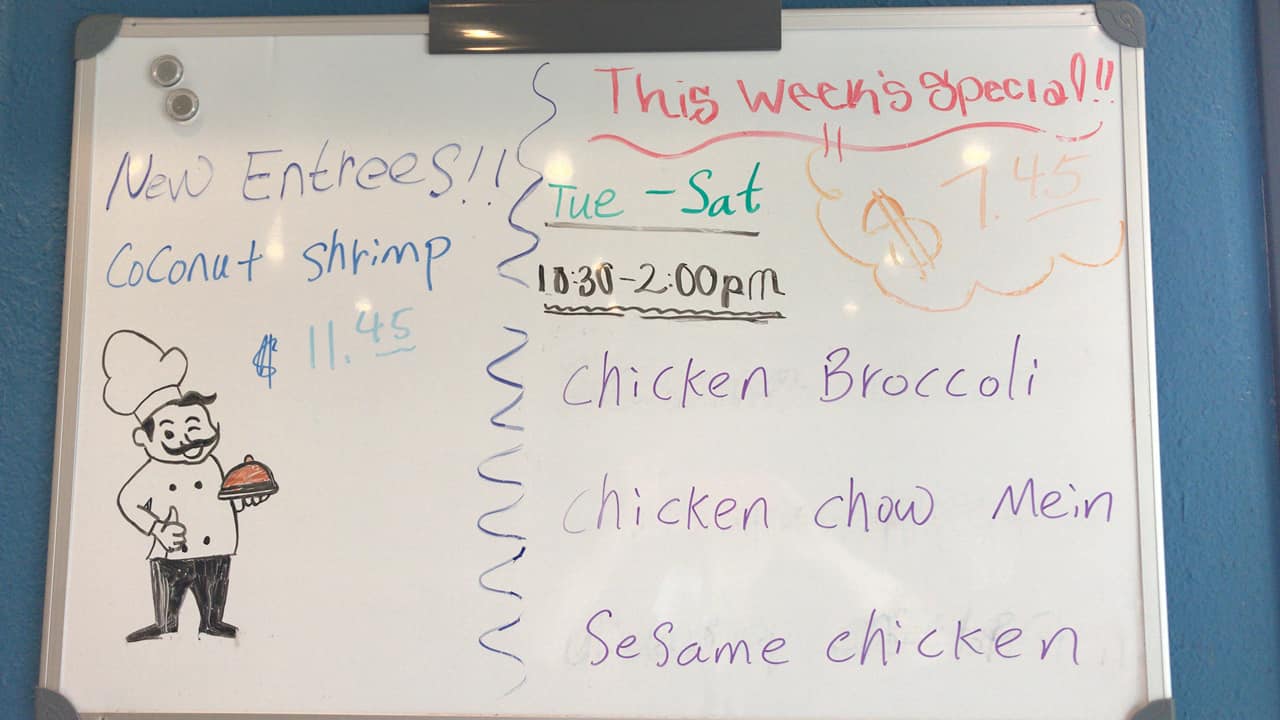 New Entrees!!
Coconut shrimp
$ 11.45
This Week's Special!!
$ 7.45
Tue - Sat
10:30-2:00pm
Chicken Broccoli
Chicken chow Mein
Sesame chicken